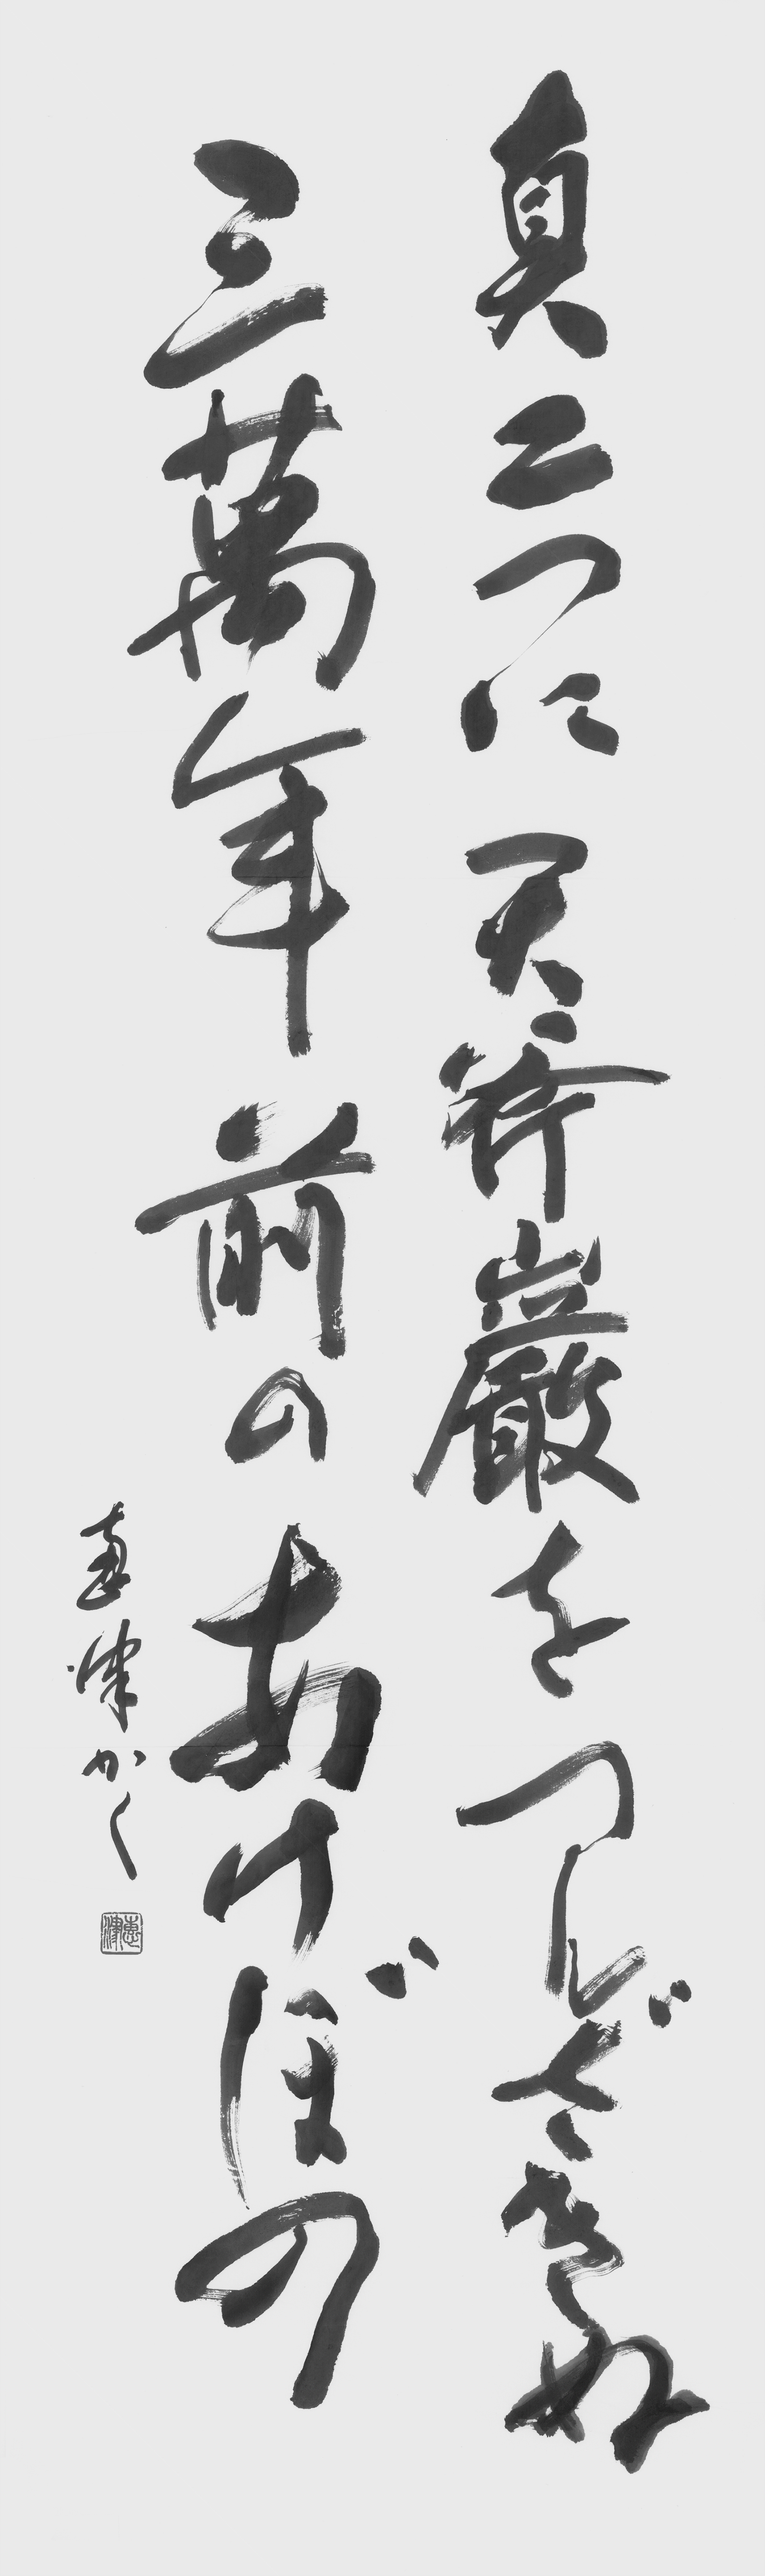 真二つに天斧巌をつんざきぬ
三萬年前のあけぼの
恵津かく
惠津